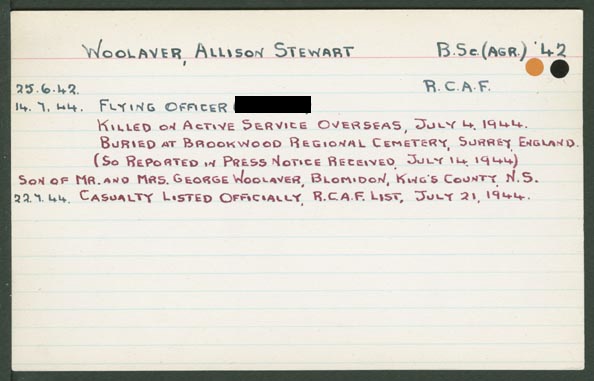 WOOLAVER, ALLISON STEWART B.Sc.(AGR.) '42
25.6.42. R.C.A.F.
14.7.44. FLYING OFFICER
KILLED ON ACTIVE SERVICE OVERSEAS, JULY 4, 1944.
BURIED AT BROOKWOOD REGIONAL CEMETERY, SURREY, ENGLAND.
(SO REPORTED IN PRESS NOTICE RECEIVED, JULY 14, 1944)
SON OF MR. AND MRS. GEORGE WOOLAVER, BLOMIDON, KING'S COUNTY, N.S.
22.7.44. CASUALTY LISTED OFFICIALLY, R.C.A.F. LIST, JULY 21, 1944.